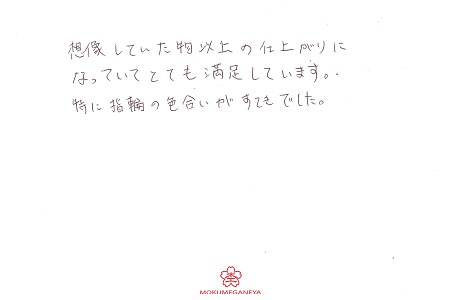 想像していた物以上の仕上がりに
なっていてとても満足しています。
特に指輪の色合いがすてきでした。
MOKUMEGANEYA